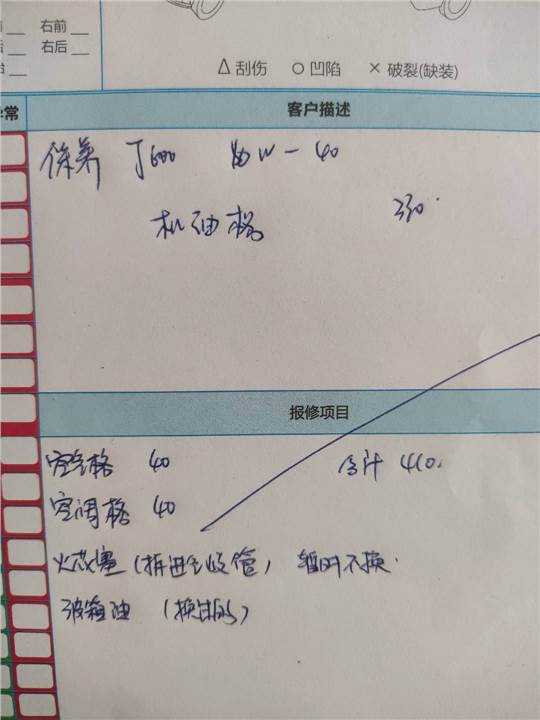 右前
右后
△ 刮伤 ○ 凹陷 × 破裂(缺装)
异常 客户描述
保养 J600 W-40
机油格 330.
报修项目
空气格 40 合计 410.
空调格 40
火花塞 (拆进气歧管) 暂时不换.
波箱油